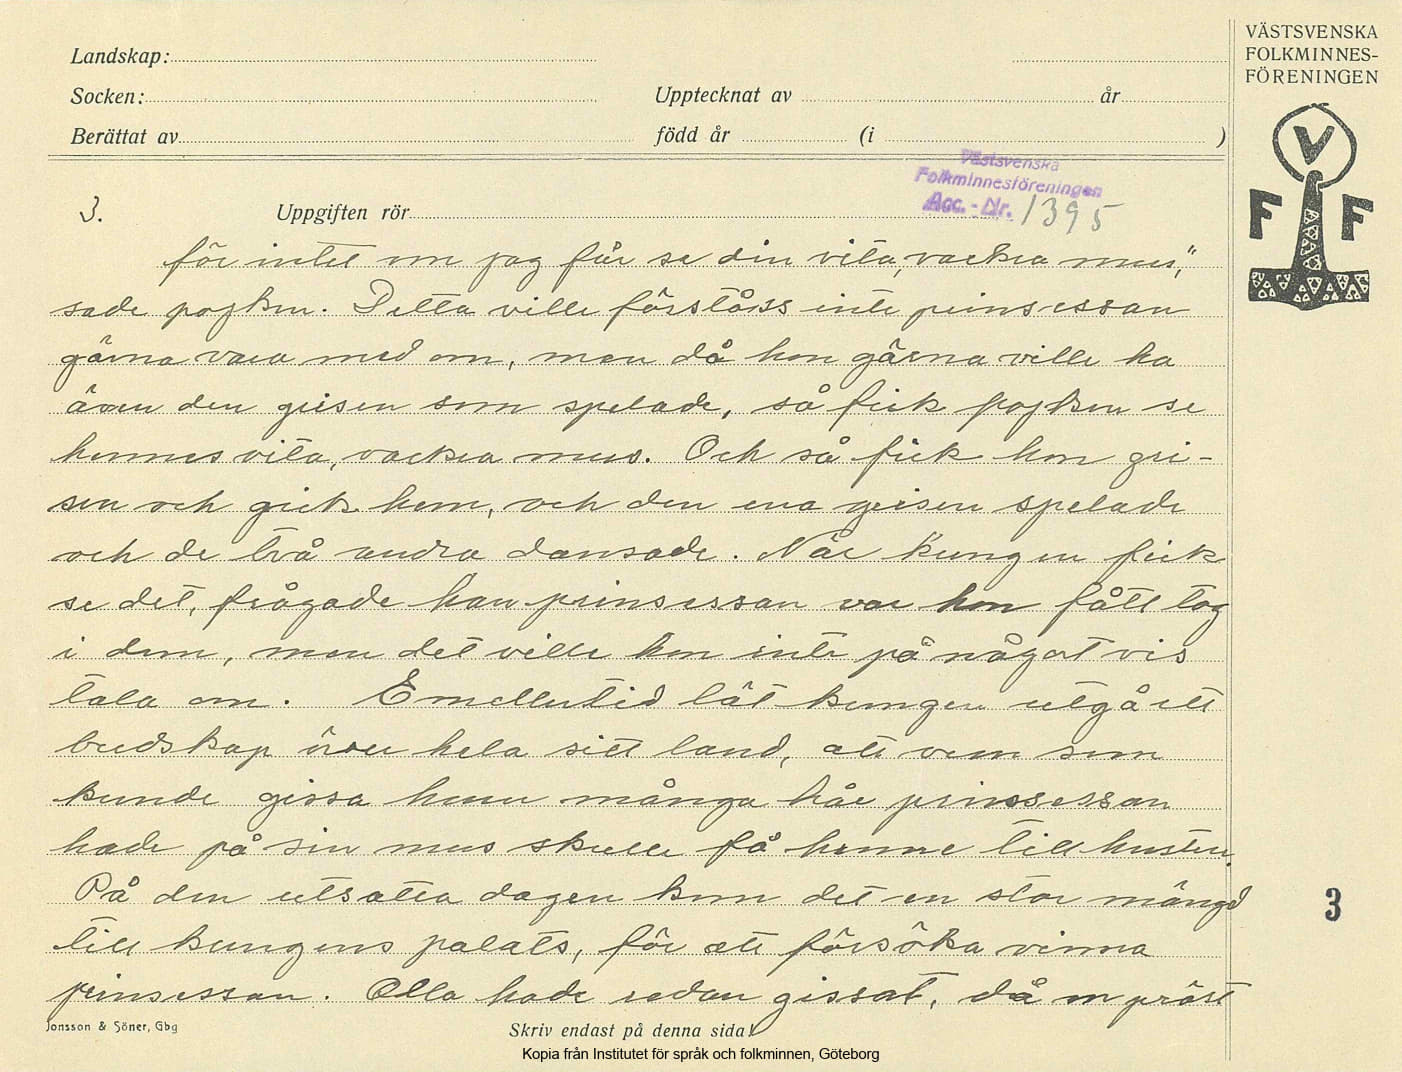 VÄSTSVENSKA
FOLKMINNES-
FÖRENINGEN
V
F F
Landskap:
Socken: Upptecknat av år
Berättat av född år (i )
Västsvenska
Folkminnesföreningen
Acc. - Nr. 1395
3. Uppgiften rör
för intet om jag får se din vita, vackra mus,"
sade pojken. Detta ville förståss inte prinsessan
gärna vara med om, men då hon gärna ville ha
även den grisen som spelade, så fick pojken se
hennes vita, vackra mus. Och så fick hon gri-
sen och gick hem, och den ena grisen spelade
och de två andra dansade. När kungen fick
se det, frågade han prinsessan var hon fått tag
i dem, men det ville hon inte på något vis
tala om. Emellertid lät kungen utgå ett
budskap över hela sitt land, att vem som
kunde gissa huru många hår prinsessan
hade på sin mus skulle få henne till hustru.
På den utsatta dagen kom det en stor mängd
till kungens palats, för att försöka vinna
prinsessan. Alla hade redan gissat, då en präst
3
Jonsson & Söner, Gbg
Skriv endast på denna sida!
Kopia från Institutet för språk och folkminnen, Göteborg